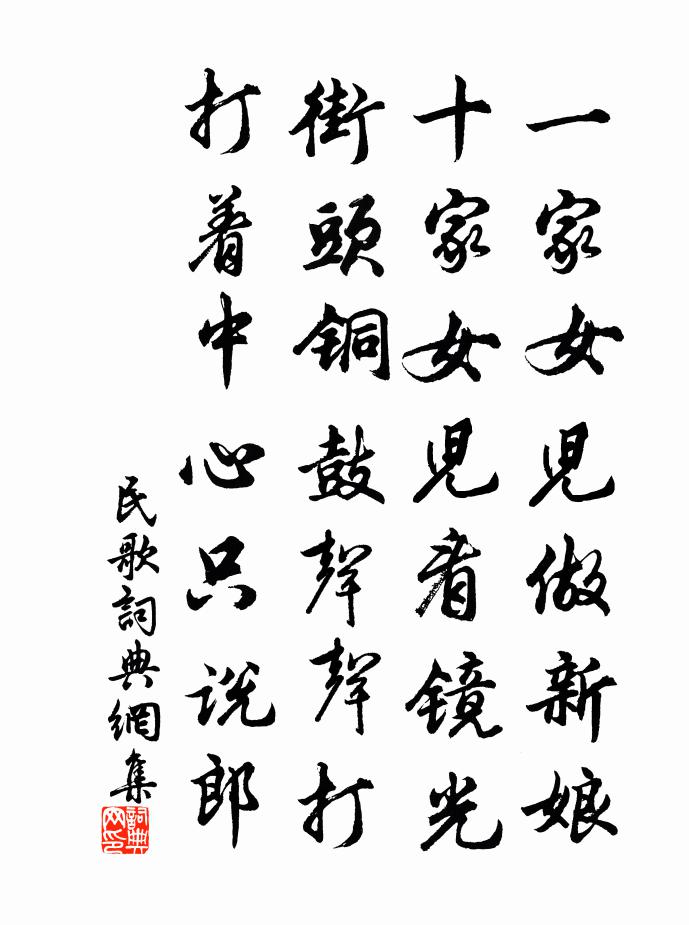 一家女兒做新娘
十家女兒看镜光
街頭铜鼓聲聲打
打着中心只说郎
民歌詞典網集
詞典网印